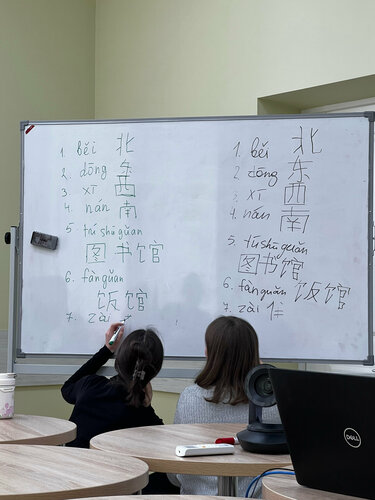 1. běi 北
2. dōng 东
3. xī 西
4. nán 南
5. tú shū guǎn
图书馆
6. fàn guǎn
饭馆
7. zài
1. běi 北
2. dōng 东
3. xī 西
4. nán 南
5. túshūguǎn
图书馆
6. fànguǎn 饭馆
7. zài
DELL